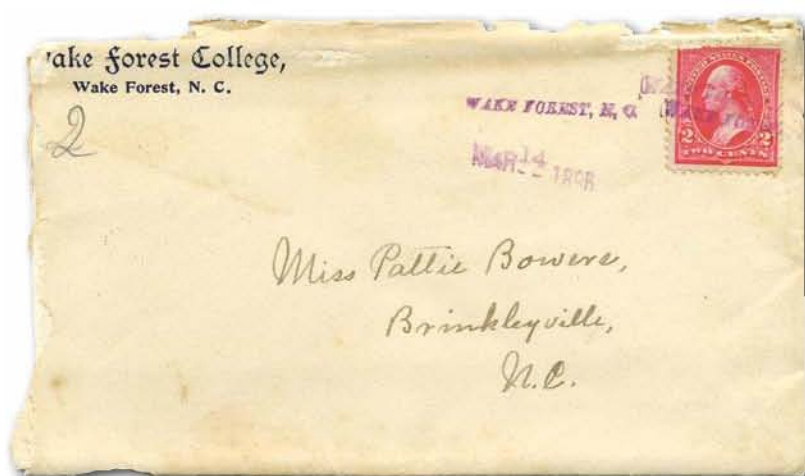 ake Forest College,
Wake Forest, N. C.
2
WAKE FOREST, N. C.
MAR 14 1898
UNITED STATES POSTAGE
2 2
TWO CENTS
Miss Pattie Bowers,
Brinkleyville,
N.C.